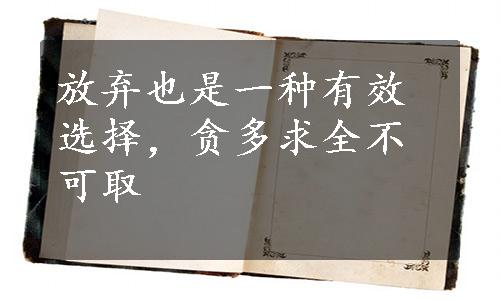 放弃也是一种有效
选择，贪多求全不
可取